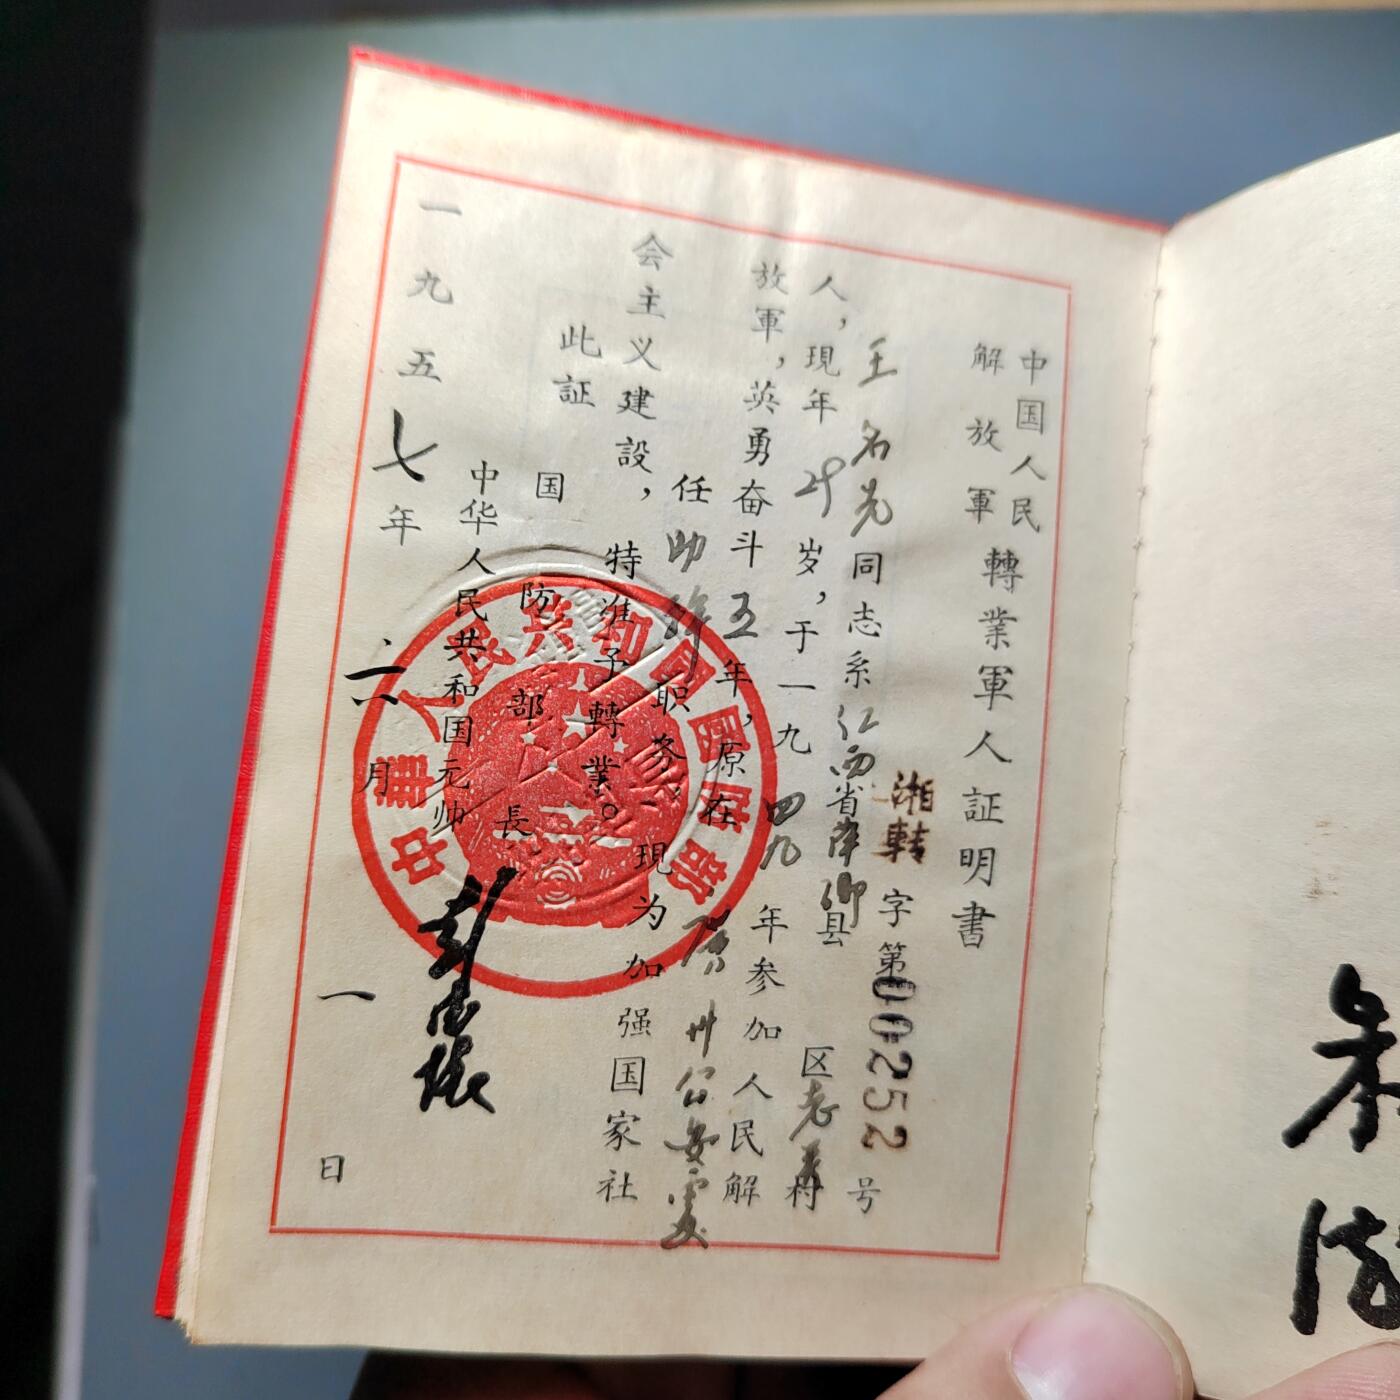 中国人民
解放軍
轉業軍人証明書
湘轉字第00252号
王名先同志系江西省萍鄉县 区老 村
人，現年 岁，于一九四九年参加人民解
放軍，英勇奋斗五年，原在广州公安
任助 职务，現为加强国家社
会主义建設，特准予轉業。
此証
国防部長
中华人民共和国元帅 彭德怀
一九五七年六月一日
中華人民共和國國防部
朱